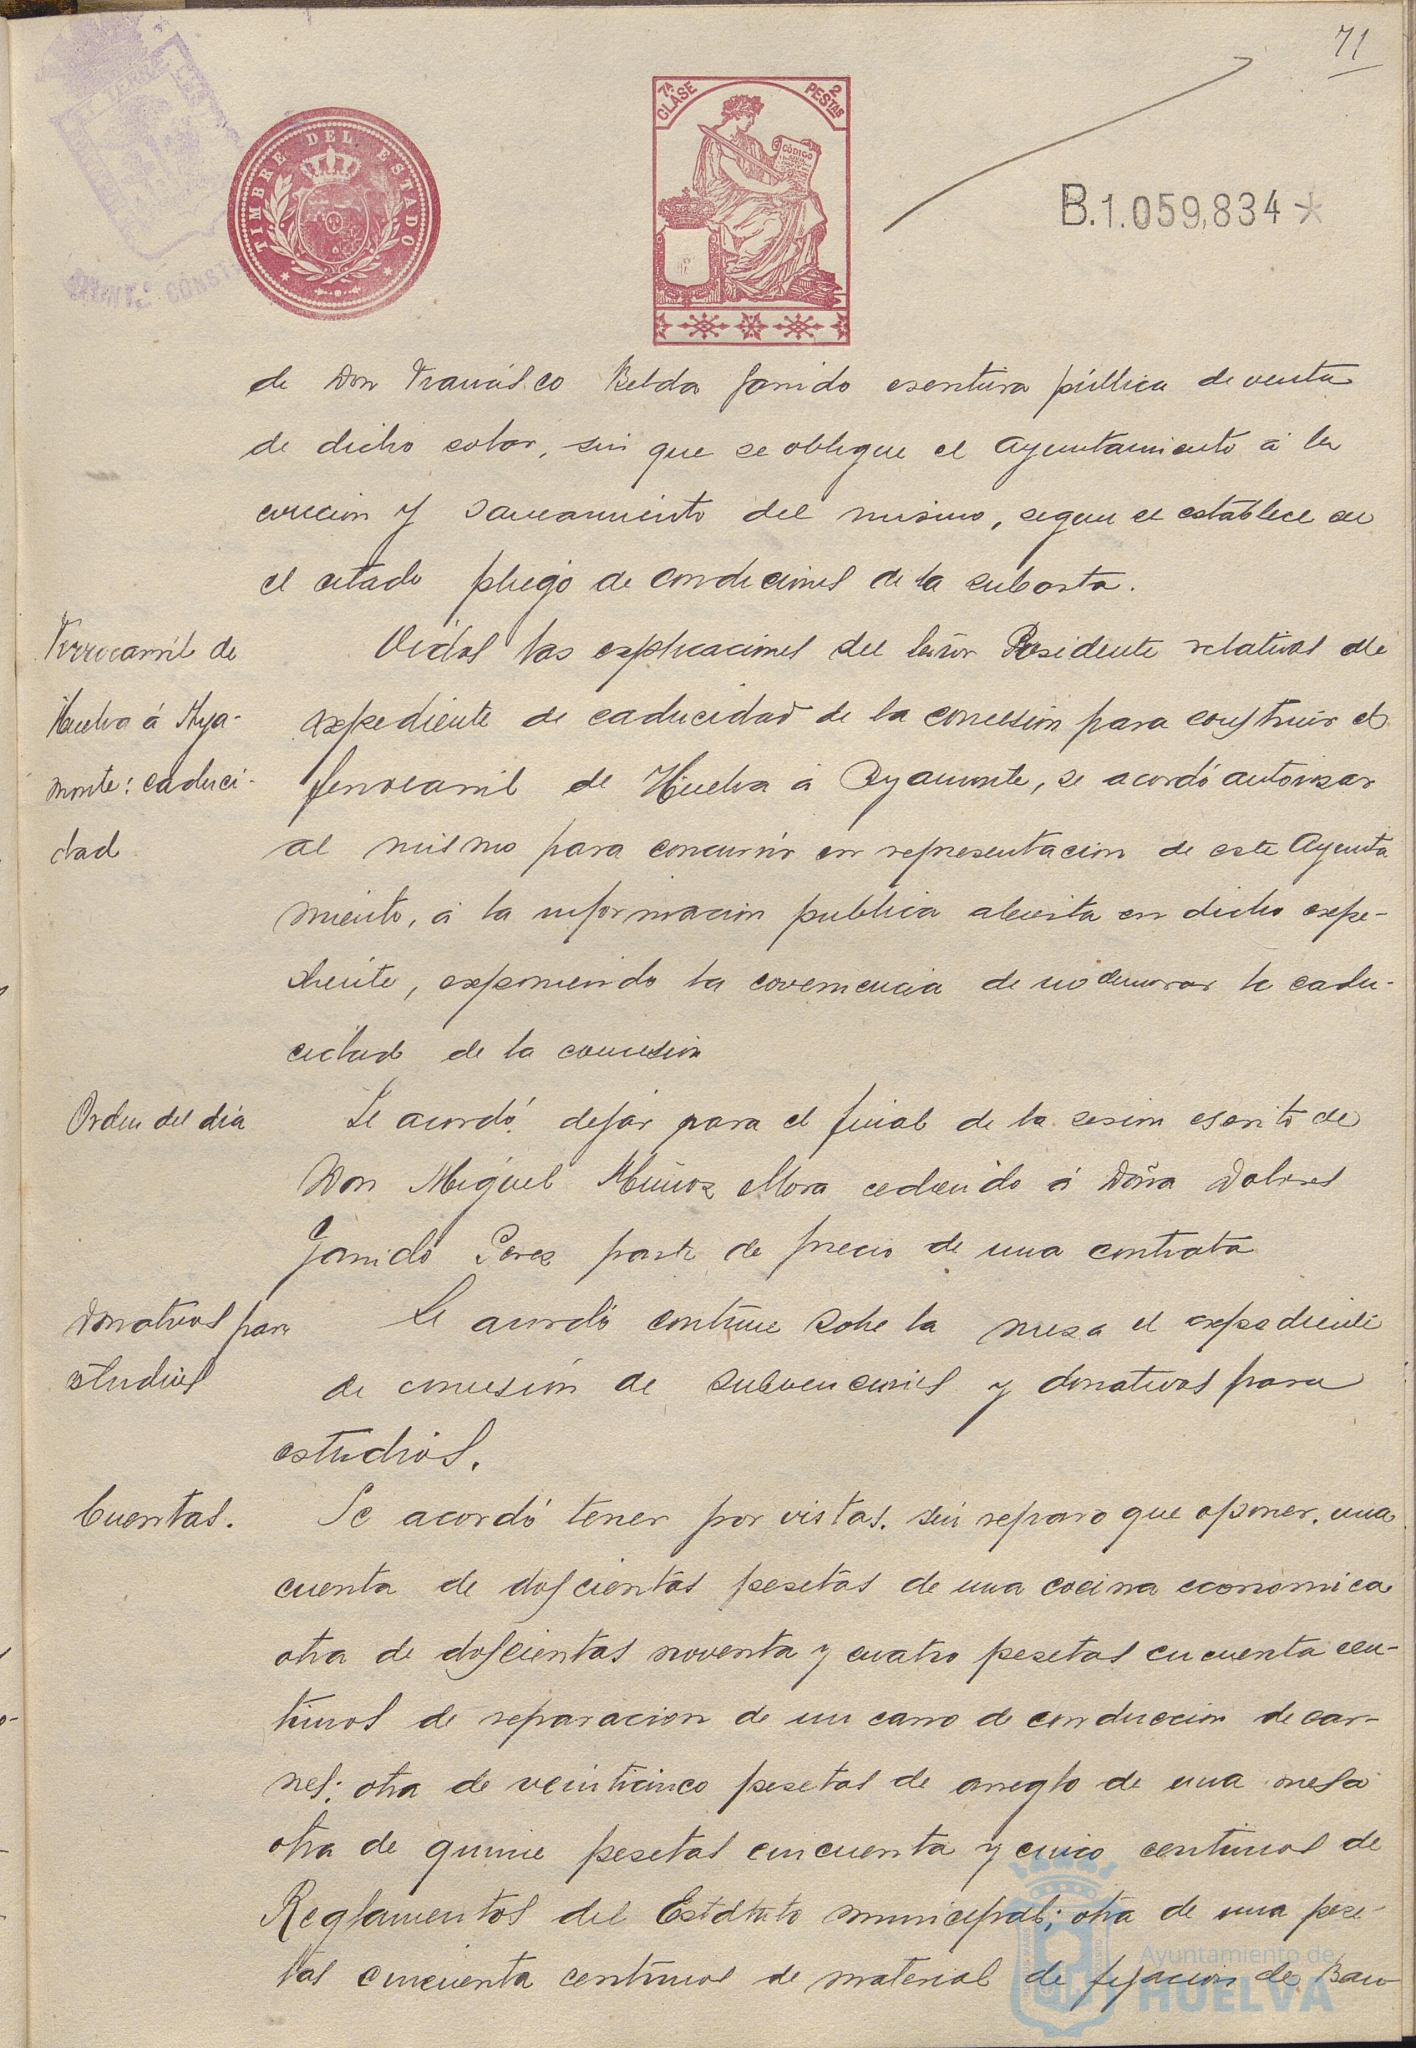 71
TIMBRE DEL ESTADO
7ª CLASE
2 PESTAS
CÓDIGO
B.1.059,834 *
de Don Francisco Belda Garrido escritura pública de venta
de dicho solar, sin que se obligue el Ayuntamiento á la
evicción y saneamiento del mismo, segun se establece en
el citado pliego de condiciones de la subasta.
Ferrocarril de
Huelva á Aya-
monte: caduci-
dad
Oidas las explicaciones del Señor Presidente relativas al
expediente de caducidad de la concesión para construir el
ferrocarril de Huelva á Ayamonte, se acordó autorizar
al mismo para concurrir en representacion de este Ayunta
miento, á la informacion publica abierta en dicho expe-
diente, exponiendo la covenencia de no demorar la cadu-
cidad de la concesion
Orden del dia
Se acordó dejar para el final de la sesion escrito de
Don Miguel Muñoz Mora cediendo á Doña Dolores
Garrido Perez parte de precio de una contrata
Donativos para
estudios
Se acordó continue sobre la mesa el expediente
de concesión de subvenciones y donativos para
estudios.
Cuentas.
Se acordó tener por vistas, sin reparo que oponer, una
cuenta de doscientas pesetas de una cocina economica
otra de doscientas noventa y cuatro pesetas cincuenta cen-
timos de reparacion de un carro de conduccion de car-
nes; otra de veinticinco pesetas de arreglo de una mesa
otra de quince pesetas cincuenta y cinco centimos de
Reglamentos del Estatuto municipal; otra de una pese-
tas cincuenta centimos de material de fijacion de Ban
Ayuntamiento de
HUELVA